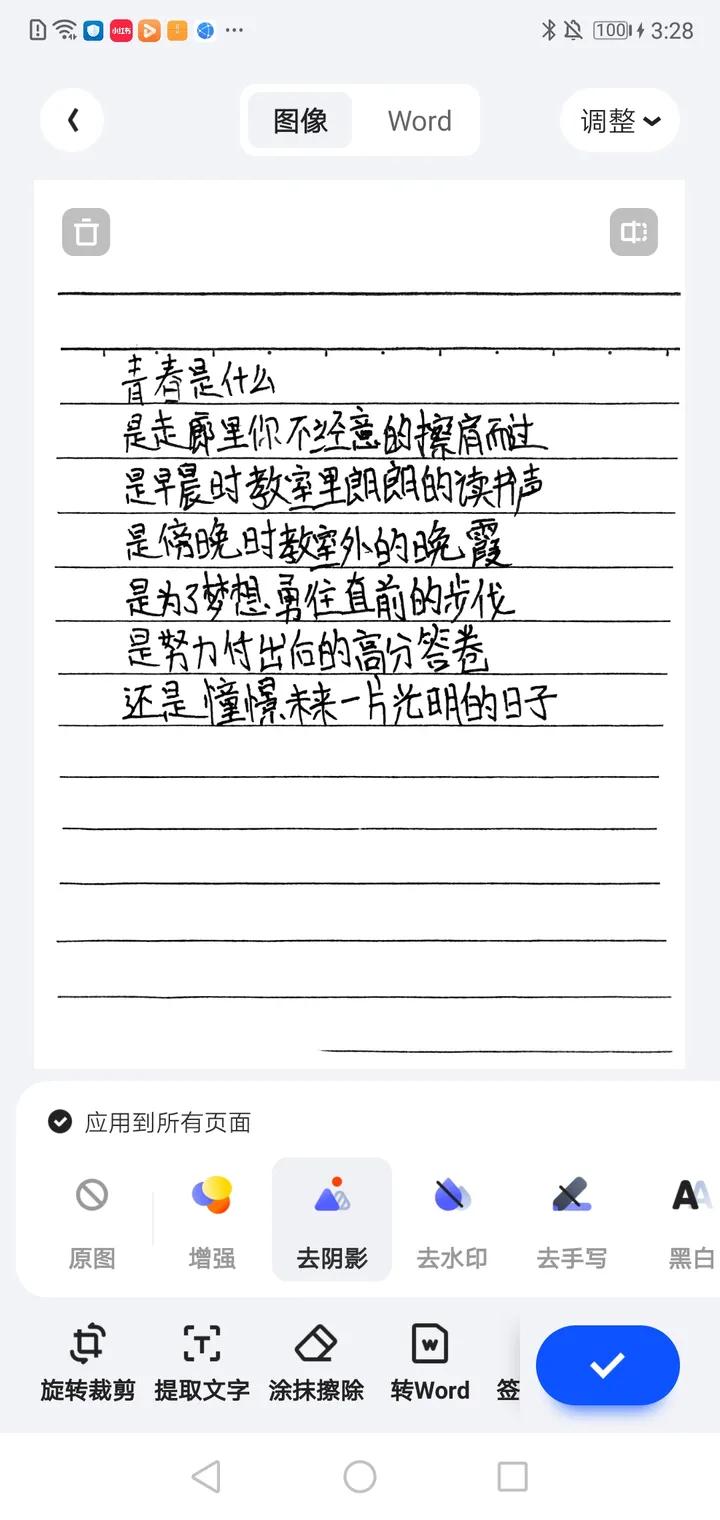 100 3:28
图像 Word 调整
青春是什么
是走廊里你不经意的擦肩而过
是早晨时教室里朗朗的读书声
是傍晚时教室外的晚霞
是为了梦想勇往直前的步伐
是努力付出后的高分答卷
还是憧憬未来一片光明的日子
应用到所有页面
原图 增强 去阴影 去水印 去手写 黑白
旋转裁剪 提取文字 涂抹擦除 转Word 签